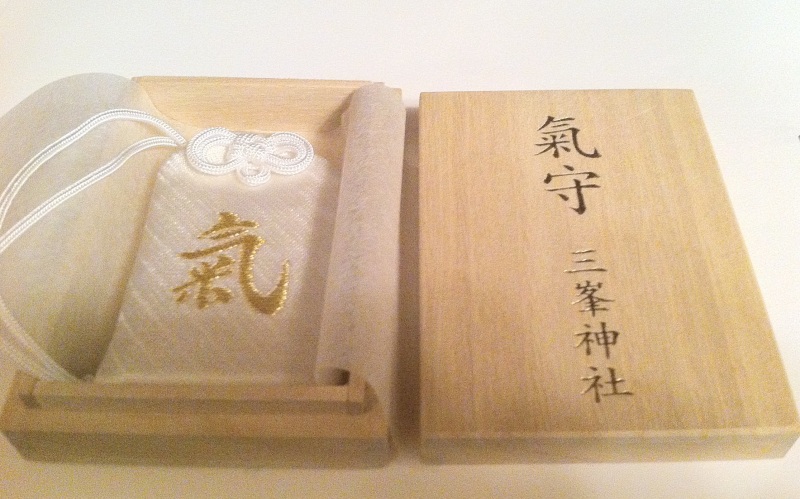 氣
氣守
三峯神社